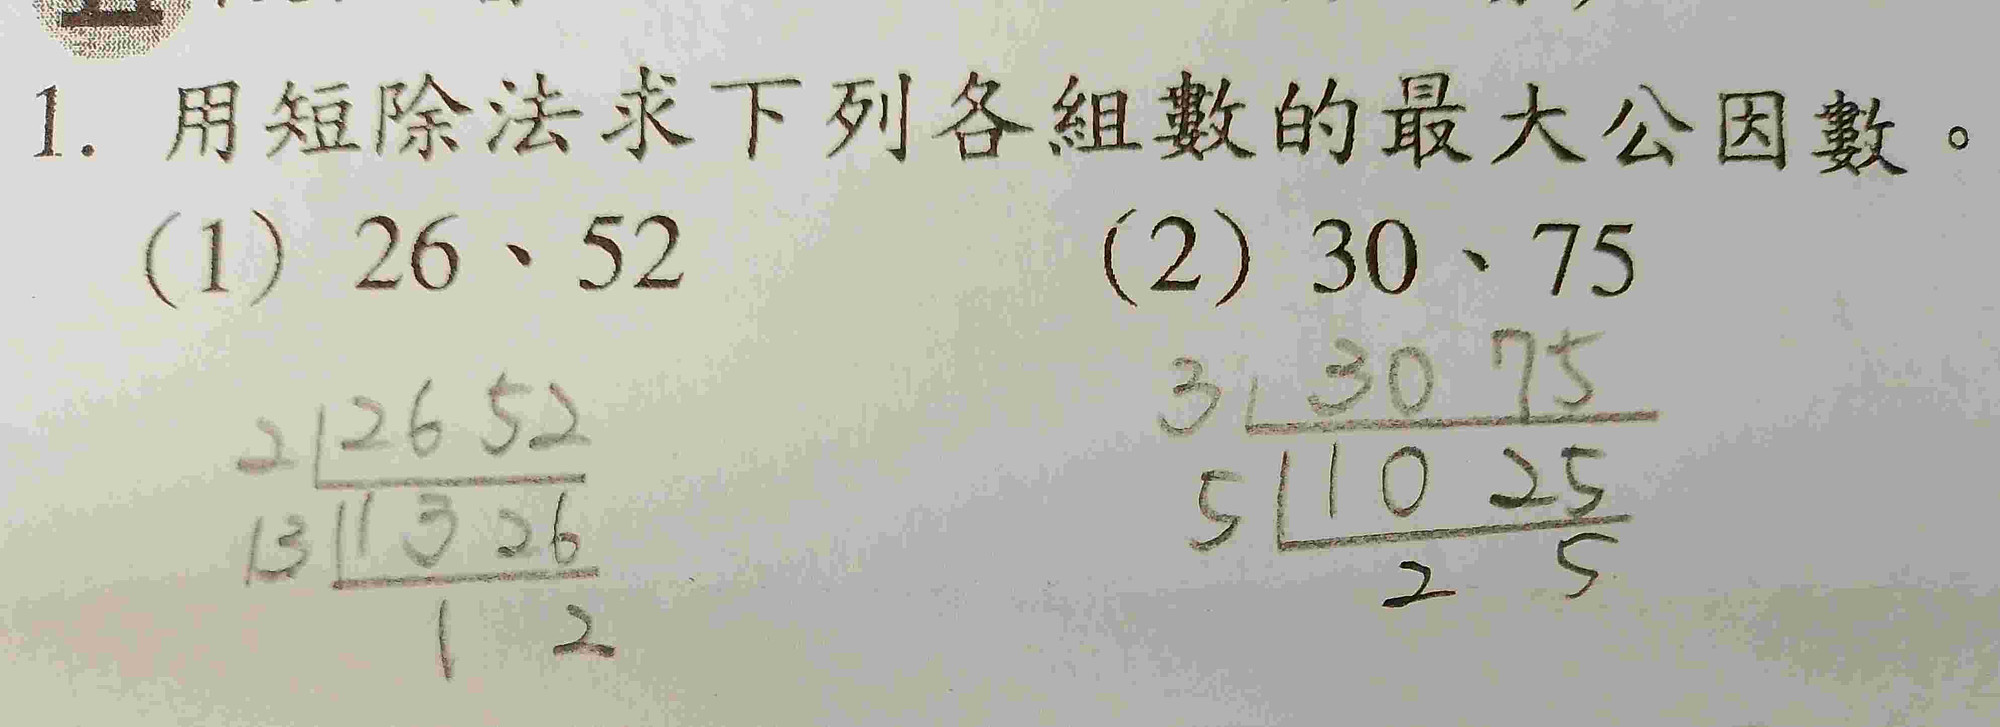 1. 用短除法求下列各組數的最大公因數。
(1) 26、52
(2) 30、75
2 26 52
13 13 26
1 2
3 30 75
5 10 25
2 5